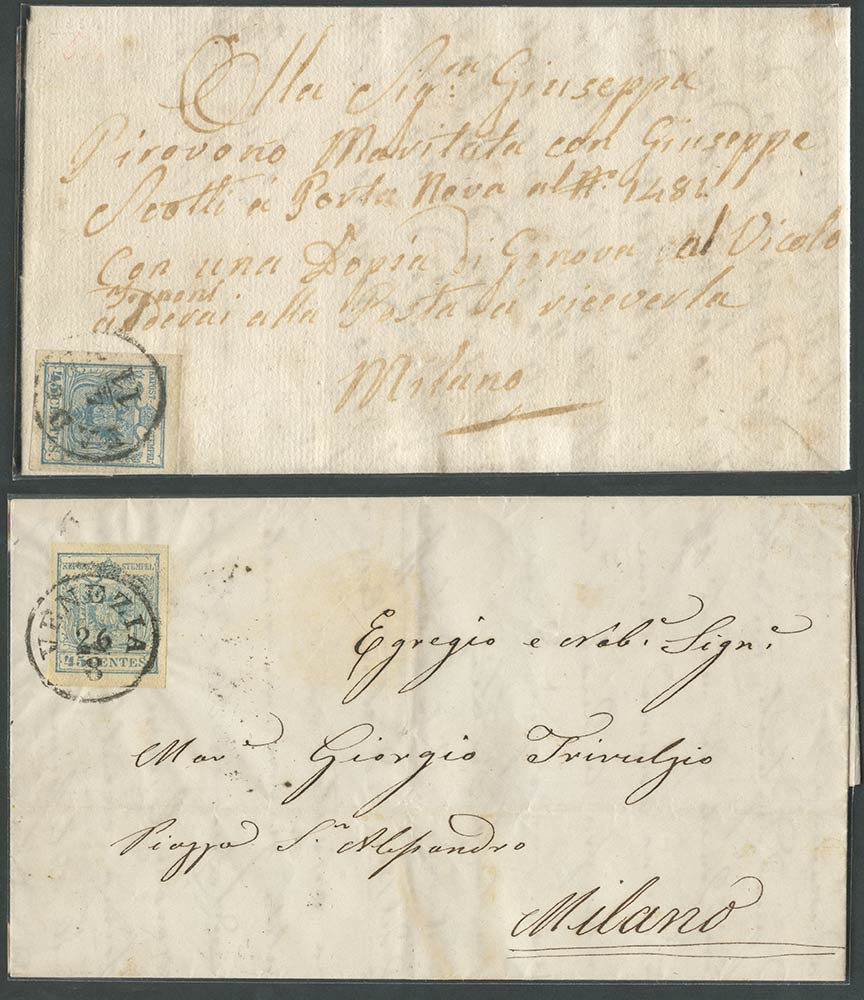 Alla Sig.ra Giuseppa
Pirovono Maritata con Giuseppe
Scotti á Porta Nova al N.o 1481
con una Dopia di Genova al Vicolo
anderai alla Posta á riceverla
Milano
45 CENTES
KKPOST STEMPEL
VENEZIA
26
8
45 CENTES
Egregio e Nob.e Sign.e
Mar.e Giorgio Trivulzio
Piazza S.n Alessandro
Milano